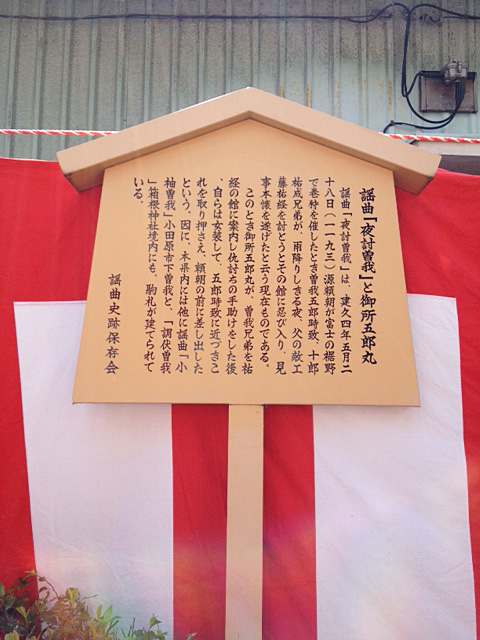 謡曲「夜討曽我」と御所五郎丸
謡曲「夜討曽我」は、建久四年五月二
十八日(一一九三)源頼朝が富士の裾野
で巻狩を催したとき曽我五郎時致、十郎
祐成兄弟が、雨降りしきる夜、父の敵工
藤祐経を討とうとその館に忍び入り、見
事本懐を遂げたと云う現在ものである。
このとき御所五郎丸が、曽我兄弟を祐
経の館に案内し仇討ちの手助けをした後
、自らは女装して、五郎時致に近づきこ
れを取り押さえ、頼朝の前に差し出した
という。因に、本県内には他に謡曲「小
袖曽我」小田原市下曽我と、「調伏曽我
」箱根神社境内にも、駒札が建てられて
いる。
謡曲史跡保存会